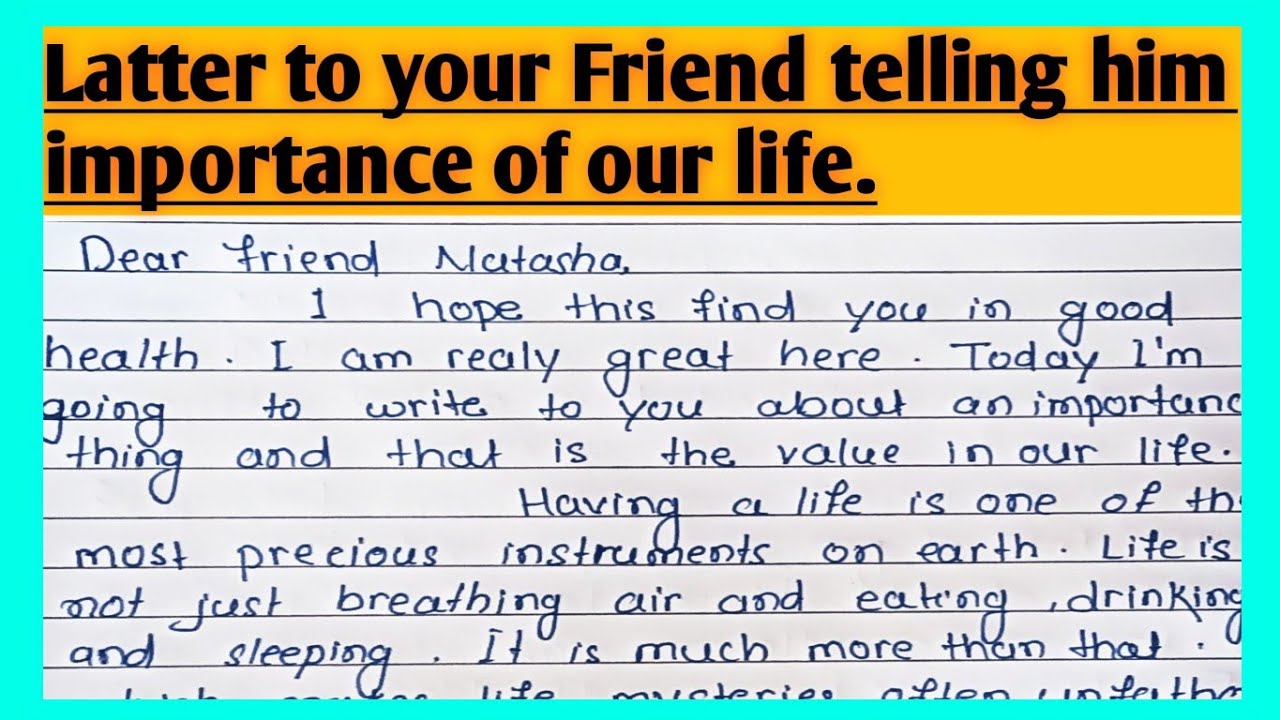 Latter to your Friend telling him
importance of our life.
Dear friend Natasha,
I hope this find you in good
health. I am realy great here. Today I'm
going to write to you about an importanc
thing and that is the value in our life.
Having a life is one of th
most precious instruments on earth. Life is
not just breathing air and eating, drinking
and sleeping. It is much more than that.
life mysteries often